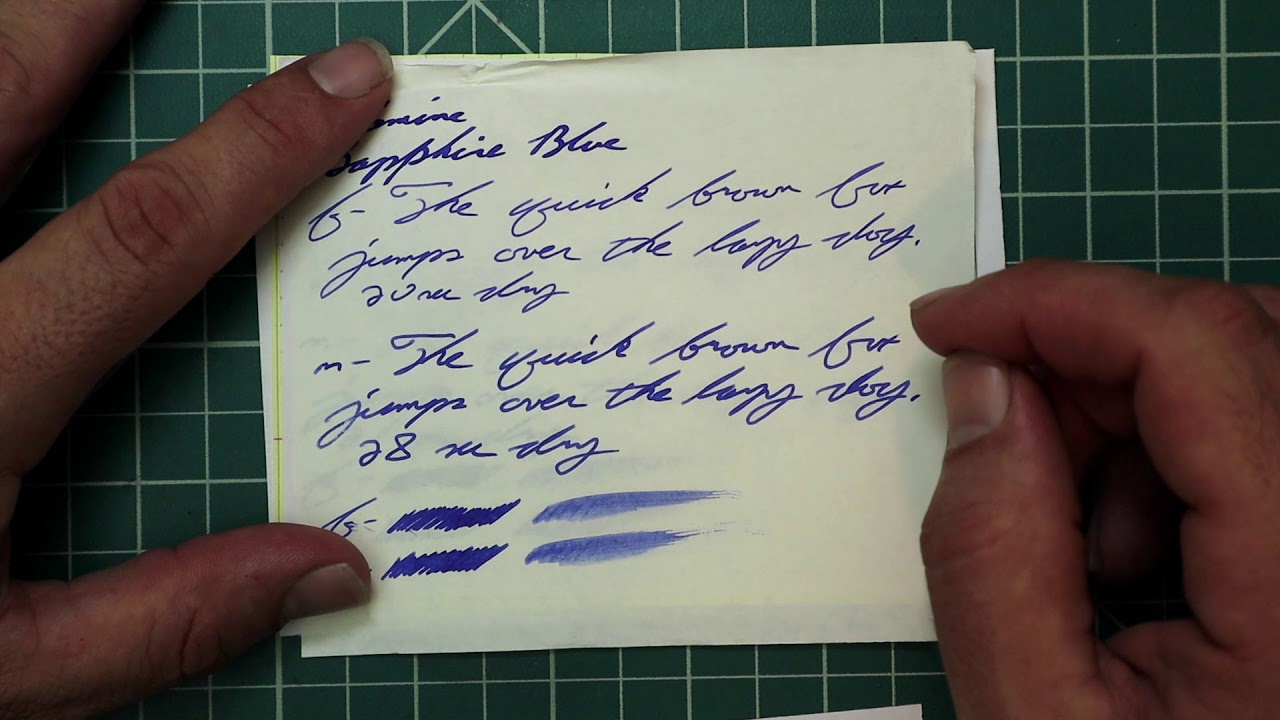 Sapphire Blue
f- The quick brown fox
jumps over the lazy dog.
20 sec dry
m- The quick brown fox
jumps over the lazy dog.
28 sec dry
f-